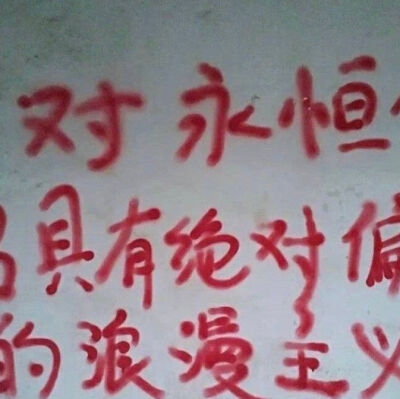 对永恒
具有绝对偏
的浪漫主义